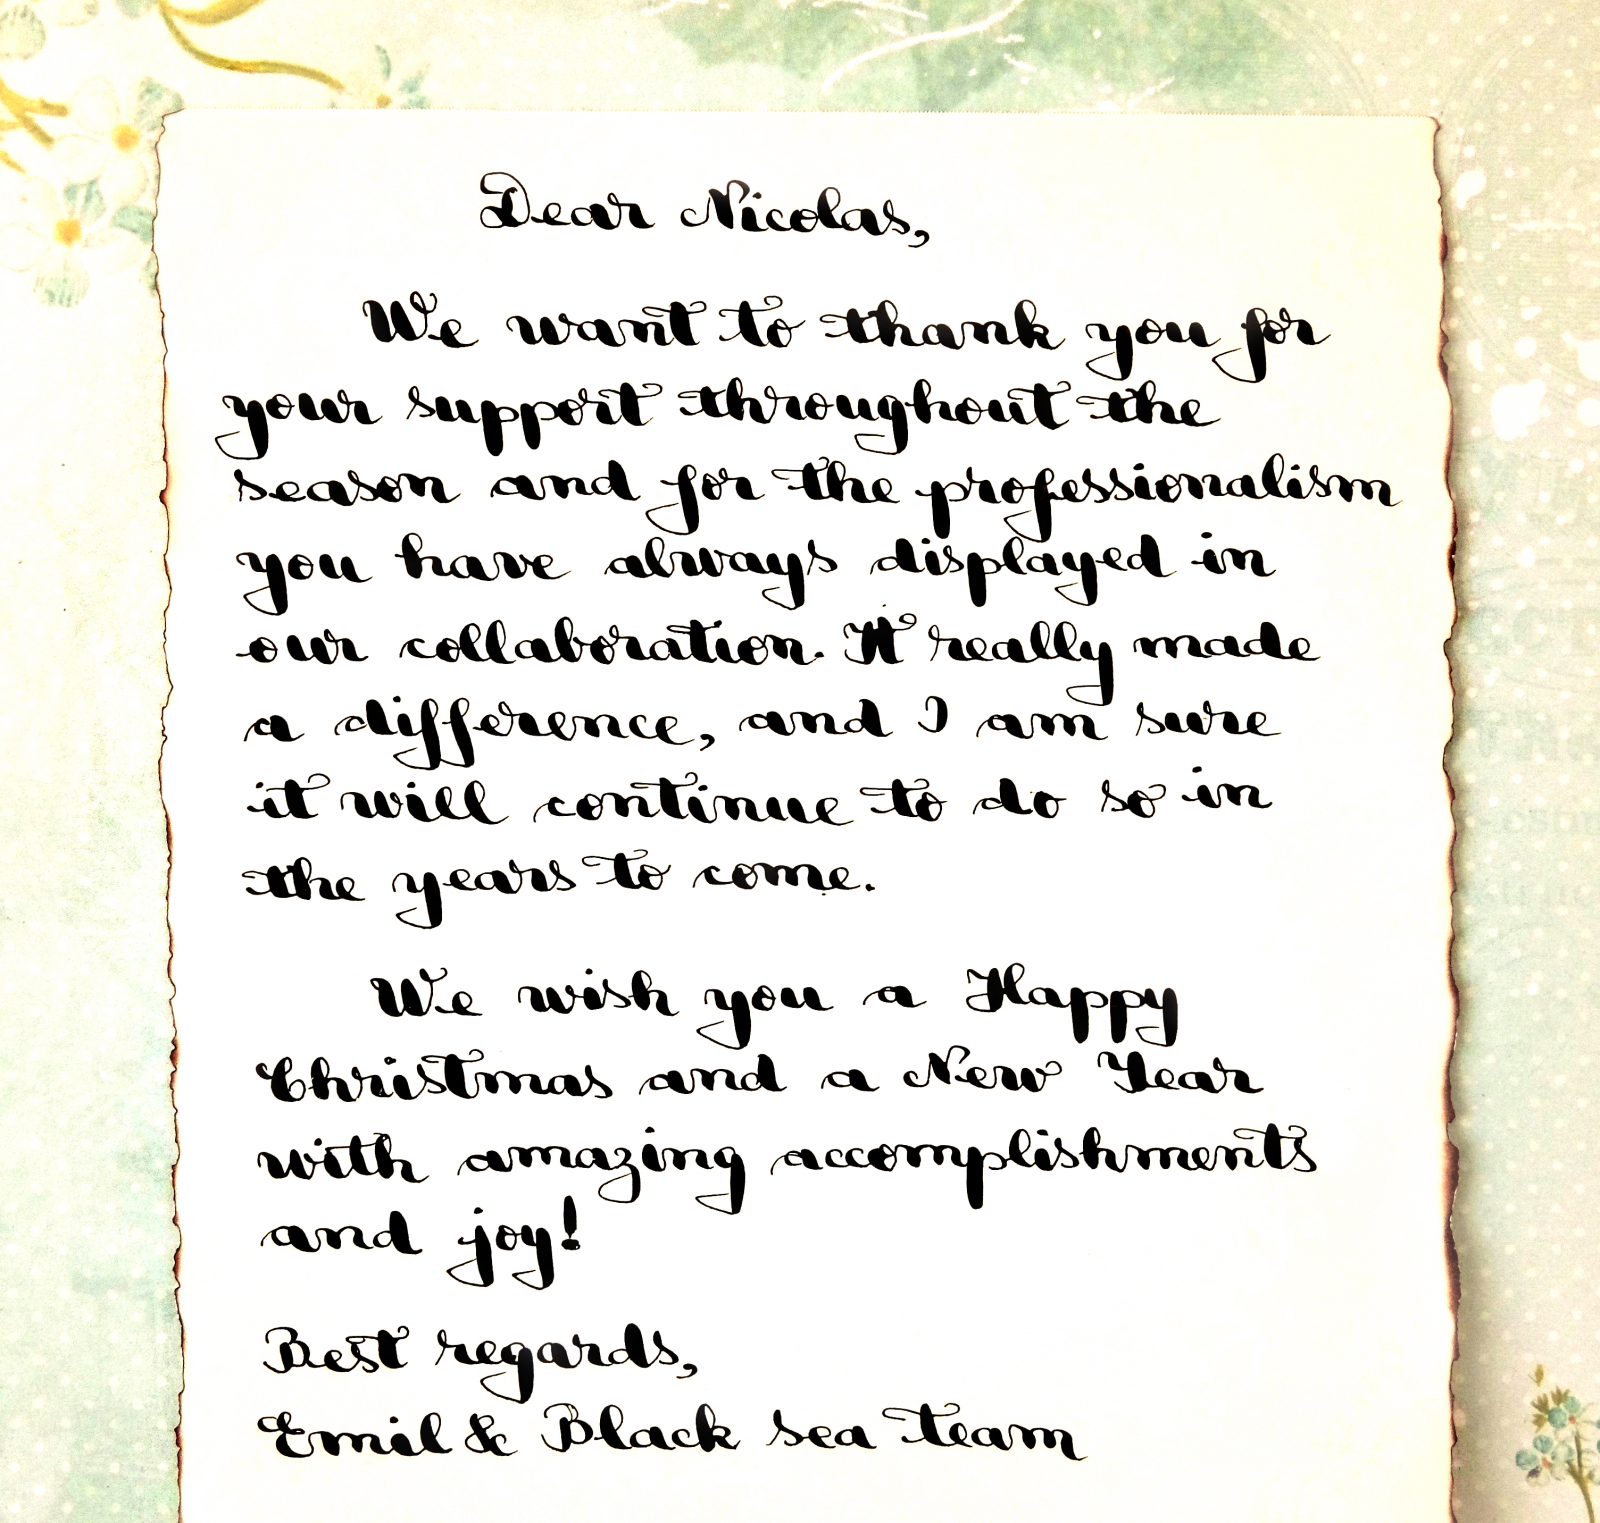 Dear Nicolas,
We want to thank you for
your support throughout the
season and for the professionalism
you have always displayed in
our collaboration. It really made
a difference, and I am sure
it will continue to do so in
the years to come.
We wish you a Happy
Christmas and a New Year
with amazing accomplishments
and joy!
Best regards,
Emil & Black sea team